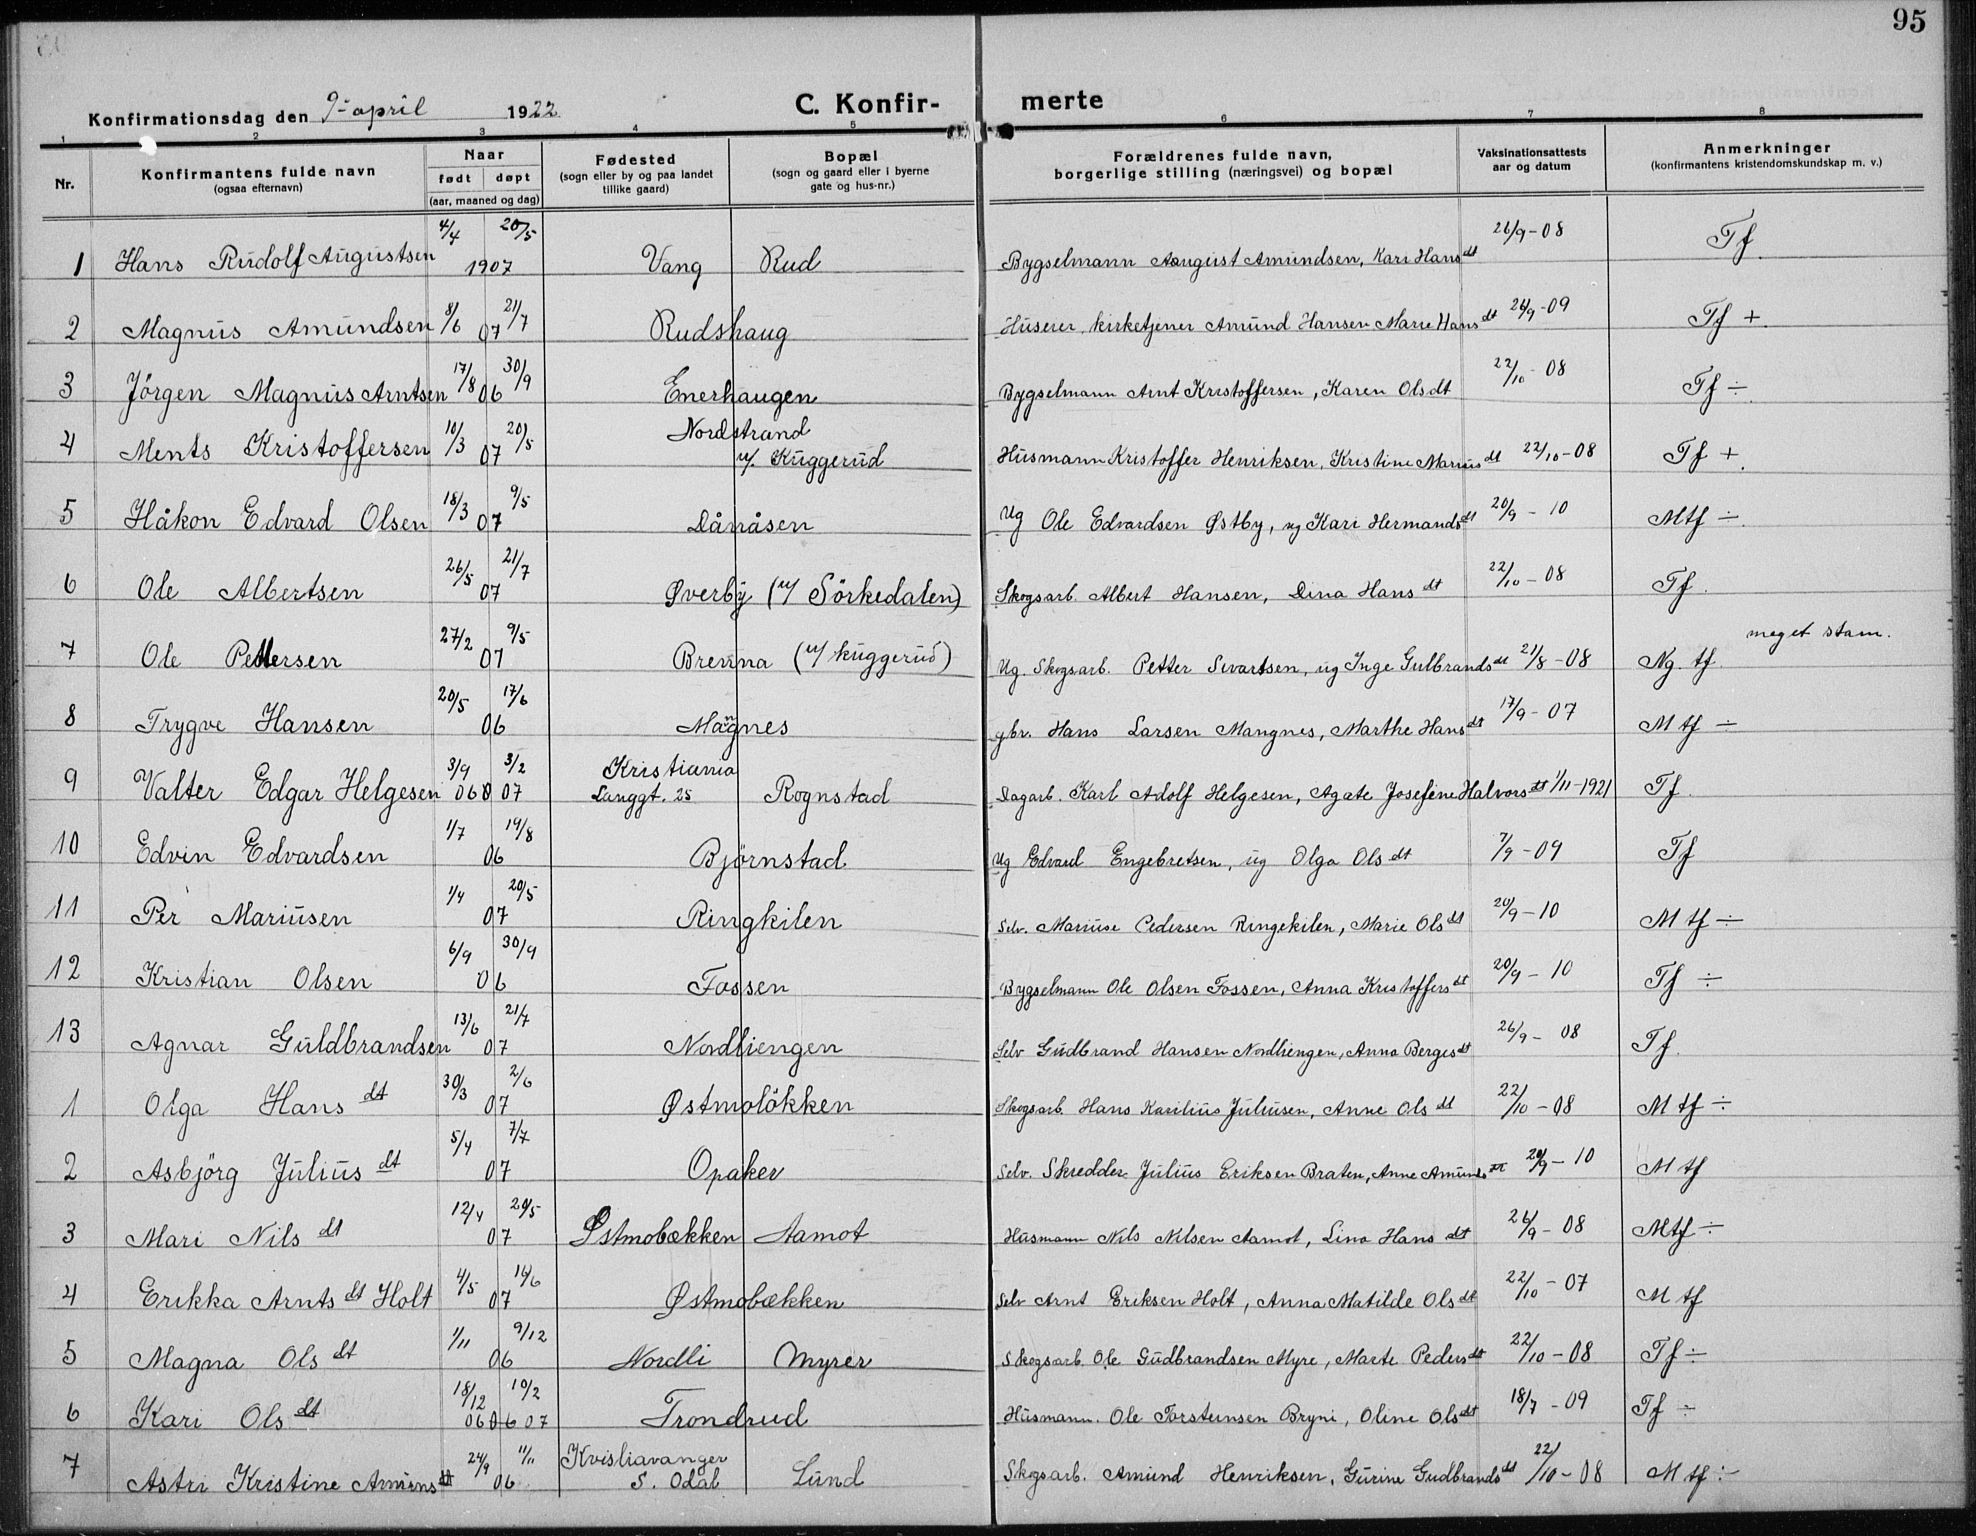 95
Konfirmationsdag den 9- april 1922 C. Konfir- merte
1 2 3 4 5 6 7 8
Nr. Konfirmantens fulde navn (ogsaa efternavn) Naar født døpt (aar, maaned og dag) Fødested (sogn eller by og paa landet tillike gaard) Bopæl (sogn og gaard eller i byerne gate og hus-nr.) Forældrenes fulde navn, borgerlige stilling (næringsvei) og bopæl Vaksinationsattests aar og datum Anmerkninger (konfirmantens kristendomskundskap m. v.)
1 Hans Rudolf Augustsen 4/4 20/5 1907 Vang Rud Bygselmann August Amundsen, Kari Hansdt 26/9-08 Tf
2 Magnus Amundsen 8/6 21/7 07 Rudshaug Huseier, kirketjener Amund Hansen Marie Hansdt 26/9-09 Tf +.
3 Jörgen Magnus Arntsen 17/8 30/9 06 Enerhaugen Bygselmann Arnt Kristoffersen, Karen Olsdt 22/10-08 Tf ÷.
4 Ments Kristoffersen 10/3 20/5 07 Nordstrand u/. Kuggerud Husmann Kristoffer Henriksen, Kristine Mariusdt 22/10-08 Tf +.
5 Håkon Edvard Olsen 18/3 9/5 07 Dånåsen Ug Ole Edvardsen Østby, ug Kari Hermandsdt 20/9-10 Mtf ÷.
6 Ole Albertsen 26/5 21/7 07 Øverby (u/ Sörkedalen) Skogsarb. Albert Hansen, Dina Hansdt 22/10-08 Tf.
7 Ole Pettersen 27/2 9/5 07 Brenna (u/ Kuggerud) Ug. Skogsarb. Petter Sivartsen, ug Inge Gulbrandsdt 21/8-08 Ng. tf. meget stam.
8 Trygve Hansen 20/5 17/6 06 Mangnes gbr. Hans Larsen Mangnes, Marthe Hansdt 17/9-07 M tf ÷
9 Valter Edgar Helgesen 3/9 3/2 06 07 Kristiania Langgt. 25 Rognstad Dagarb. Karl Adolf Helgesen, Agate Josefine Halvorsdt 1/11-1921 Tf.
10 Edvin Edvardsen 1/7 19/8 06 Björnstad Ug Edvard Engebretsen, ug Olga Olsdt 7/9-09 Tf
11 Per Mariusen 1/4 20/5 07 Ringkilen Selv. Mariuse Pedersen Ringekilen, Marie Olsdt 20/9-10 M tf ÷
12 Kristian Olsen 6/9 30/9 06 Fossen Bygselmann Ole Olsen Fossen, Anna Kristoffersdt 20/9-10 Tf ÷
13 Agnar Guldbrandsen 13/6 21/7 07 Nordliengen Selv Gudbrand Hansen Nordliengen, Anna Bergesdt 26/9-08 Tf.
1 Olga Hansdt 30/3 2/6 07 Østmolökken Skogsarb. Hans Karilius Juliusen, Anne Olsdt 22/10-08 M tf ÷
2 Asbjörg Juliusdt 5/4 7/7 07 Opaker Selv. Skredder Julius Eriksen Braten, Anne Amundsdt 20/9-10 M tf
3 Mari Nilsdt 12/4 20/5 07 Østmobækken Aamot Husmann Nils Nilsen Aamot, Lina Hansdt 26/9-08 Mtf ÷
4 Erikka Arntsdt Holt 4/5 16/6 07 Østmobækken Selv Arnt Eriksen Holt, Anna Matilde Olsdt 22/10-07 M tf
5 Magna Olsdt 1/11 9/12 06 Nordli Myrer Skogsarb. Ole Gudbrandsen Myre, Marte Pedersdt 22/10-08 Tf ÷
6 Kari Olsdt 18/12 10/2 06 07 Trondrud Husmann. Ole Torsteinsen Bryni, Oline Olsdt 18/7-09 Tf ÷
7 Astri Kristine Amunsdt 24/9 11/11 06 Kvisliavanger S. Odal Lund Skogsarb. Amund Henriksen, Gurine Gudbrandsdt 22/10-08 M tf ÷